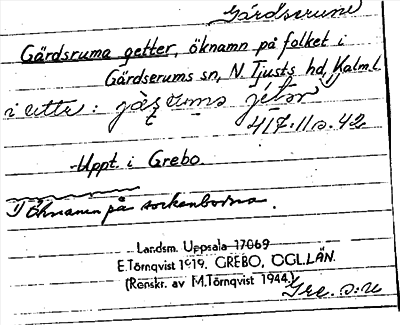 Gärdserum
Gärdsruma getter, öknamn på folket i
Gärdserums sn, N. Tjusts hd, Kalm.l.
417:11 s. 42
Uppt. i Grebo
1) Öknamn på sockenborna.
Landsm. Uppsala 17069
E.Törnqvist 1919. GREBO, ÖGL.LÄN.
(Renskr. av M.Törnqvist 1944.)